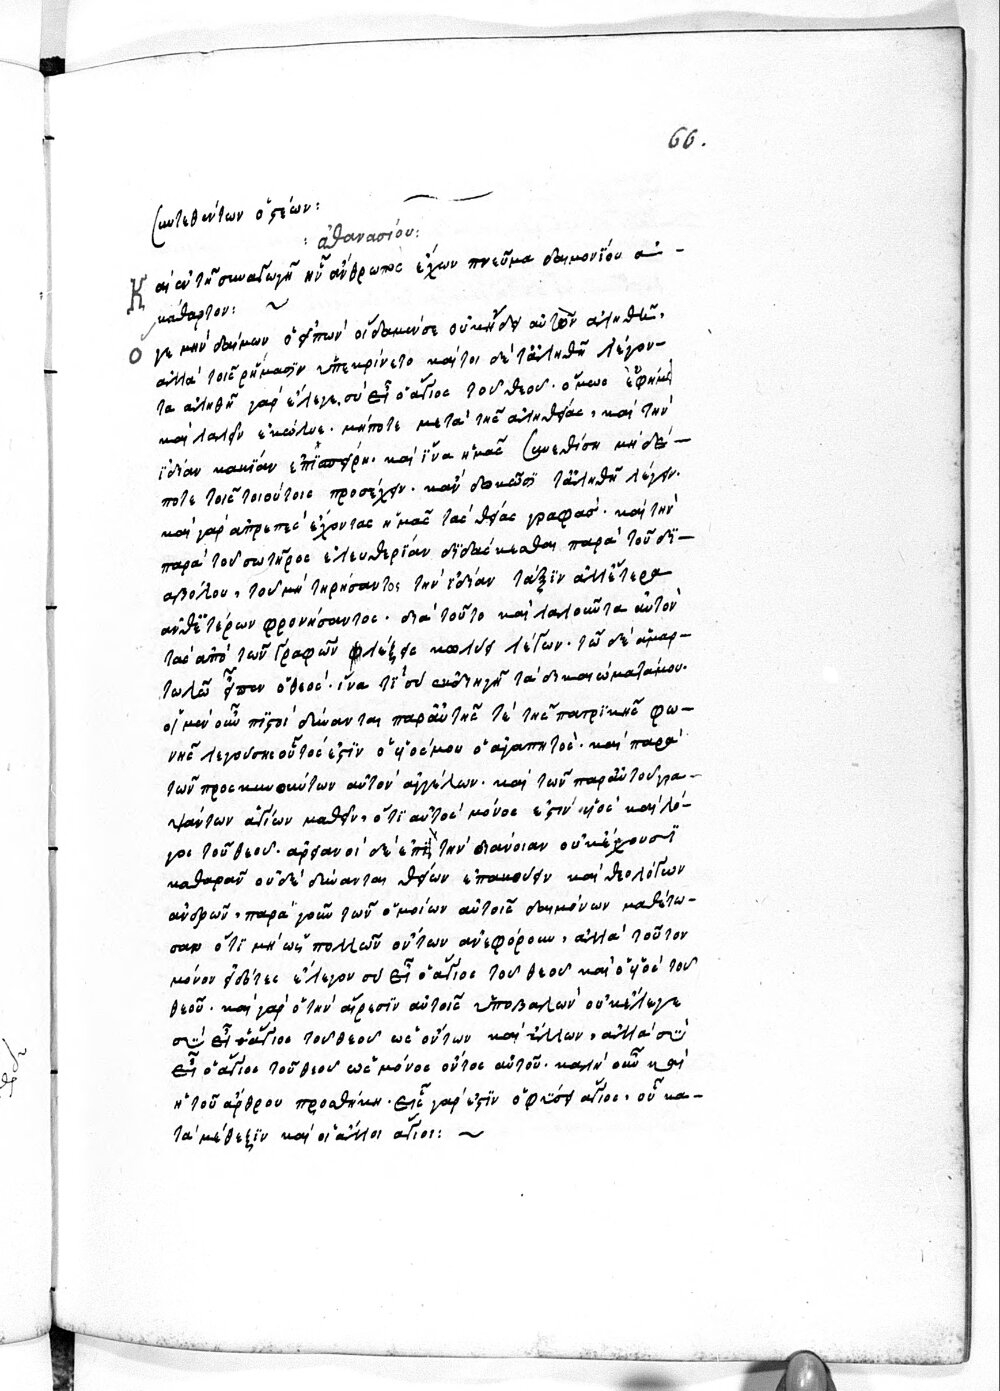 66.
συντεθέντων ὀστέων:
: ἀθανασίου:
Καὶ ἐν τῇ συναγωγῇ ἦν ἄνθρωπος ἔχων πνεῦμα δαιμονίου ἀ-
κάθαρτον:
Ὅ γε μὴν δαίμων ὁ εἰπὼν οἶδα μέν σε οὐκ ἤδει αὐτὸν ἀληθῶς,
ἀλλὰ τοῖς ῥήμασιν ὑπεκρίνετο καίτοι δὲ τἀληθῆ λέγον-
τα ἀληθῆ γὰρ ἔλεγε, σὺ εἶ ὁ ἅγιος τοῦ θεοῦ. ὅμως ἐφίμει
καὶ λαλεῖν ἐκώλυε. μήποτε μετὰ τῆς ἀληθείας, καὶ τὴν
ἰδίαν κακίαν ἐπισπείρῃ. καὶ ἵνα ἡμᾶς συνεθίσῃ μηδέ-
ποτε τοῖς τοιούτοις προσέχειν. κἂν δοκῶσι τἀληθῆ λέγειν.
καὶ γὰρ ἀπρεπὲς ἔχοντας ἡμᾶς τὰς θείας γραφάς. καὶ τὴν
παρὰ τοῦ σωτῆρος ἐλευθερίαν διδάσκεσθαι παρὰ τοῦ δι-
αβόλου, τοῦ μὴ τηρήσαντος τὴν ἰδίαν τάξιν ἀλλ' ἕτερα
ἀνθ' ἑτέρων φρονήσαντος. διὰ τοῦτο καὶ λαλοῦντα αὐτὸν
τὰς ἀπὸ τῶν γραφῶν λέξεις κωλύει λέγων. τῷ δὲ ἁμαρ-
τωλῷ εἶπεν ὁ θεός. ἵνα τί σὺ ἐκδιηγῇ τὰ δικαιώματά μου.
οἱ μὲν οὖν πιστοὶ δύνανται παρ' αὐτῆς τε τῆς πατρικῆς φω-
νῆς λεγούσης οὗτός ἐστιν ὁ υἱός μου ὁ ἀγαπητός. καὶ παρὰ
τῶν προσκυνούντων αὐτὸν ἀγγέλων. καὶ τῶν παρ' αὐτοῦ γρα-
ψάντων ἁγίων μαθεῖν, ὅτι αὐτὸς μόνος ἐστὶν υἱὸς καὶ λό-
γος τοῦ θεοῦ. ἀρειανοὶ δὲ ἐπεὶ τὴν διάνοιαν οὐκ ἔχουσι
καθαρὰν οὐδὲ δύνανται θείων ἐπακούειν καὶ θεολόγων
ἀνδρῶν, παρὰ γοῦν τῶν ὁμοίων αὐτοῖς δαιμόνων μαθέτω-
σαν ὅτι μὴ ὡς πολλῶν ὄντων ἀνεφόρουν, ἀλλὰ τοῦτον
μόνον εἰδότες ἔλεγον σὺ εἶ ὁ ἅγιος τοῦ θεοῦ καὶ ὁ υἱὸς τοῦ
θεοῦ. καὶ γὰρ ὁ τὴν αἵρεσιν αὐτοῖς ὑποβαλὼν οὐκ ἔλεγε
σὺ εἶ ἅγιος τοῦ θεοῦ ὡς ὄντων καὶ ἄλλων, ἀλλὰ σὺ
εἶ ὁ ἅγιος τοῦ θεοῦ ὡς μόνος οὗτος αὐτοῦ. καλὴ οὖν καὶ
ἡ τοῦ ἄρθρου προσθήκη. εἷς γάρ ἐστιν ὁ φύσει ἅγιος, οὗ κα-
τὰ μέθεξιν καὶ οἱ ἄλλοι ἅγιοι: